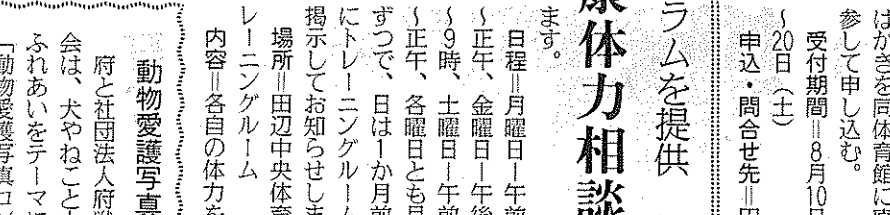 はがきを同体育館に
参して申し込む。
受付期間＝8月10
〜20日（土）
申込・問合せ先＝
ラムを提供
康体力相談
ます。
日程＝月曜日―午前
〜正午、金曜日―午後
〜9時、土曜日―午前
〜正午、各曜日とも月
ずつで、日は1か月前
にトレーニングルーム
掲示してお知らせしま
場所＝田辺中央体育
レーニングルーム
内容＝各自の体力を
動物愛護写真
府と社団法人府獣
会は、犬やねこと
ふれあいをテーマに
「動物愛護写真コン